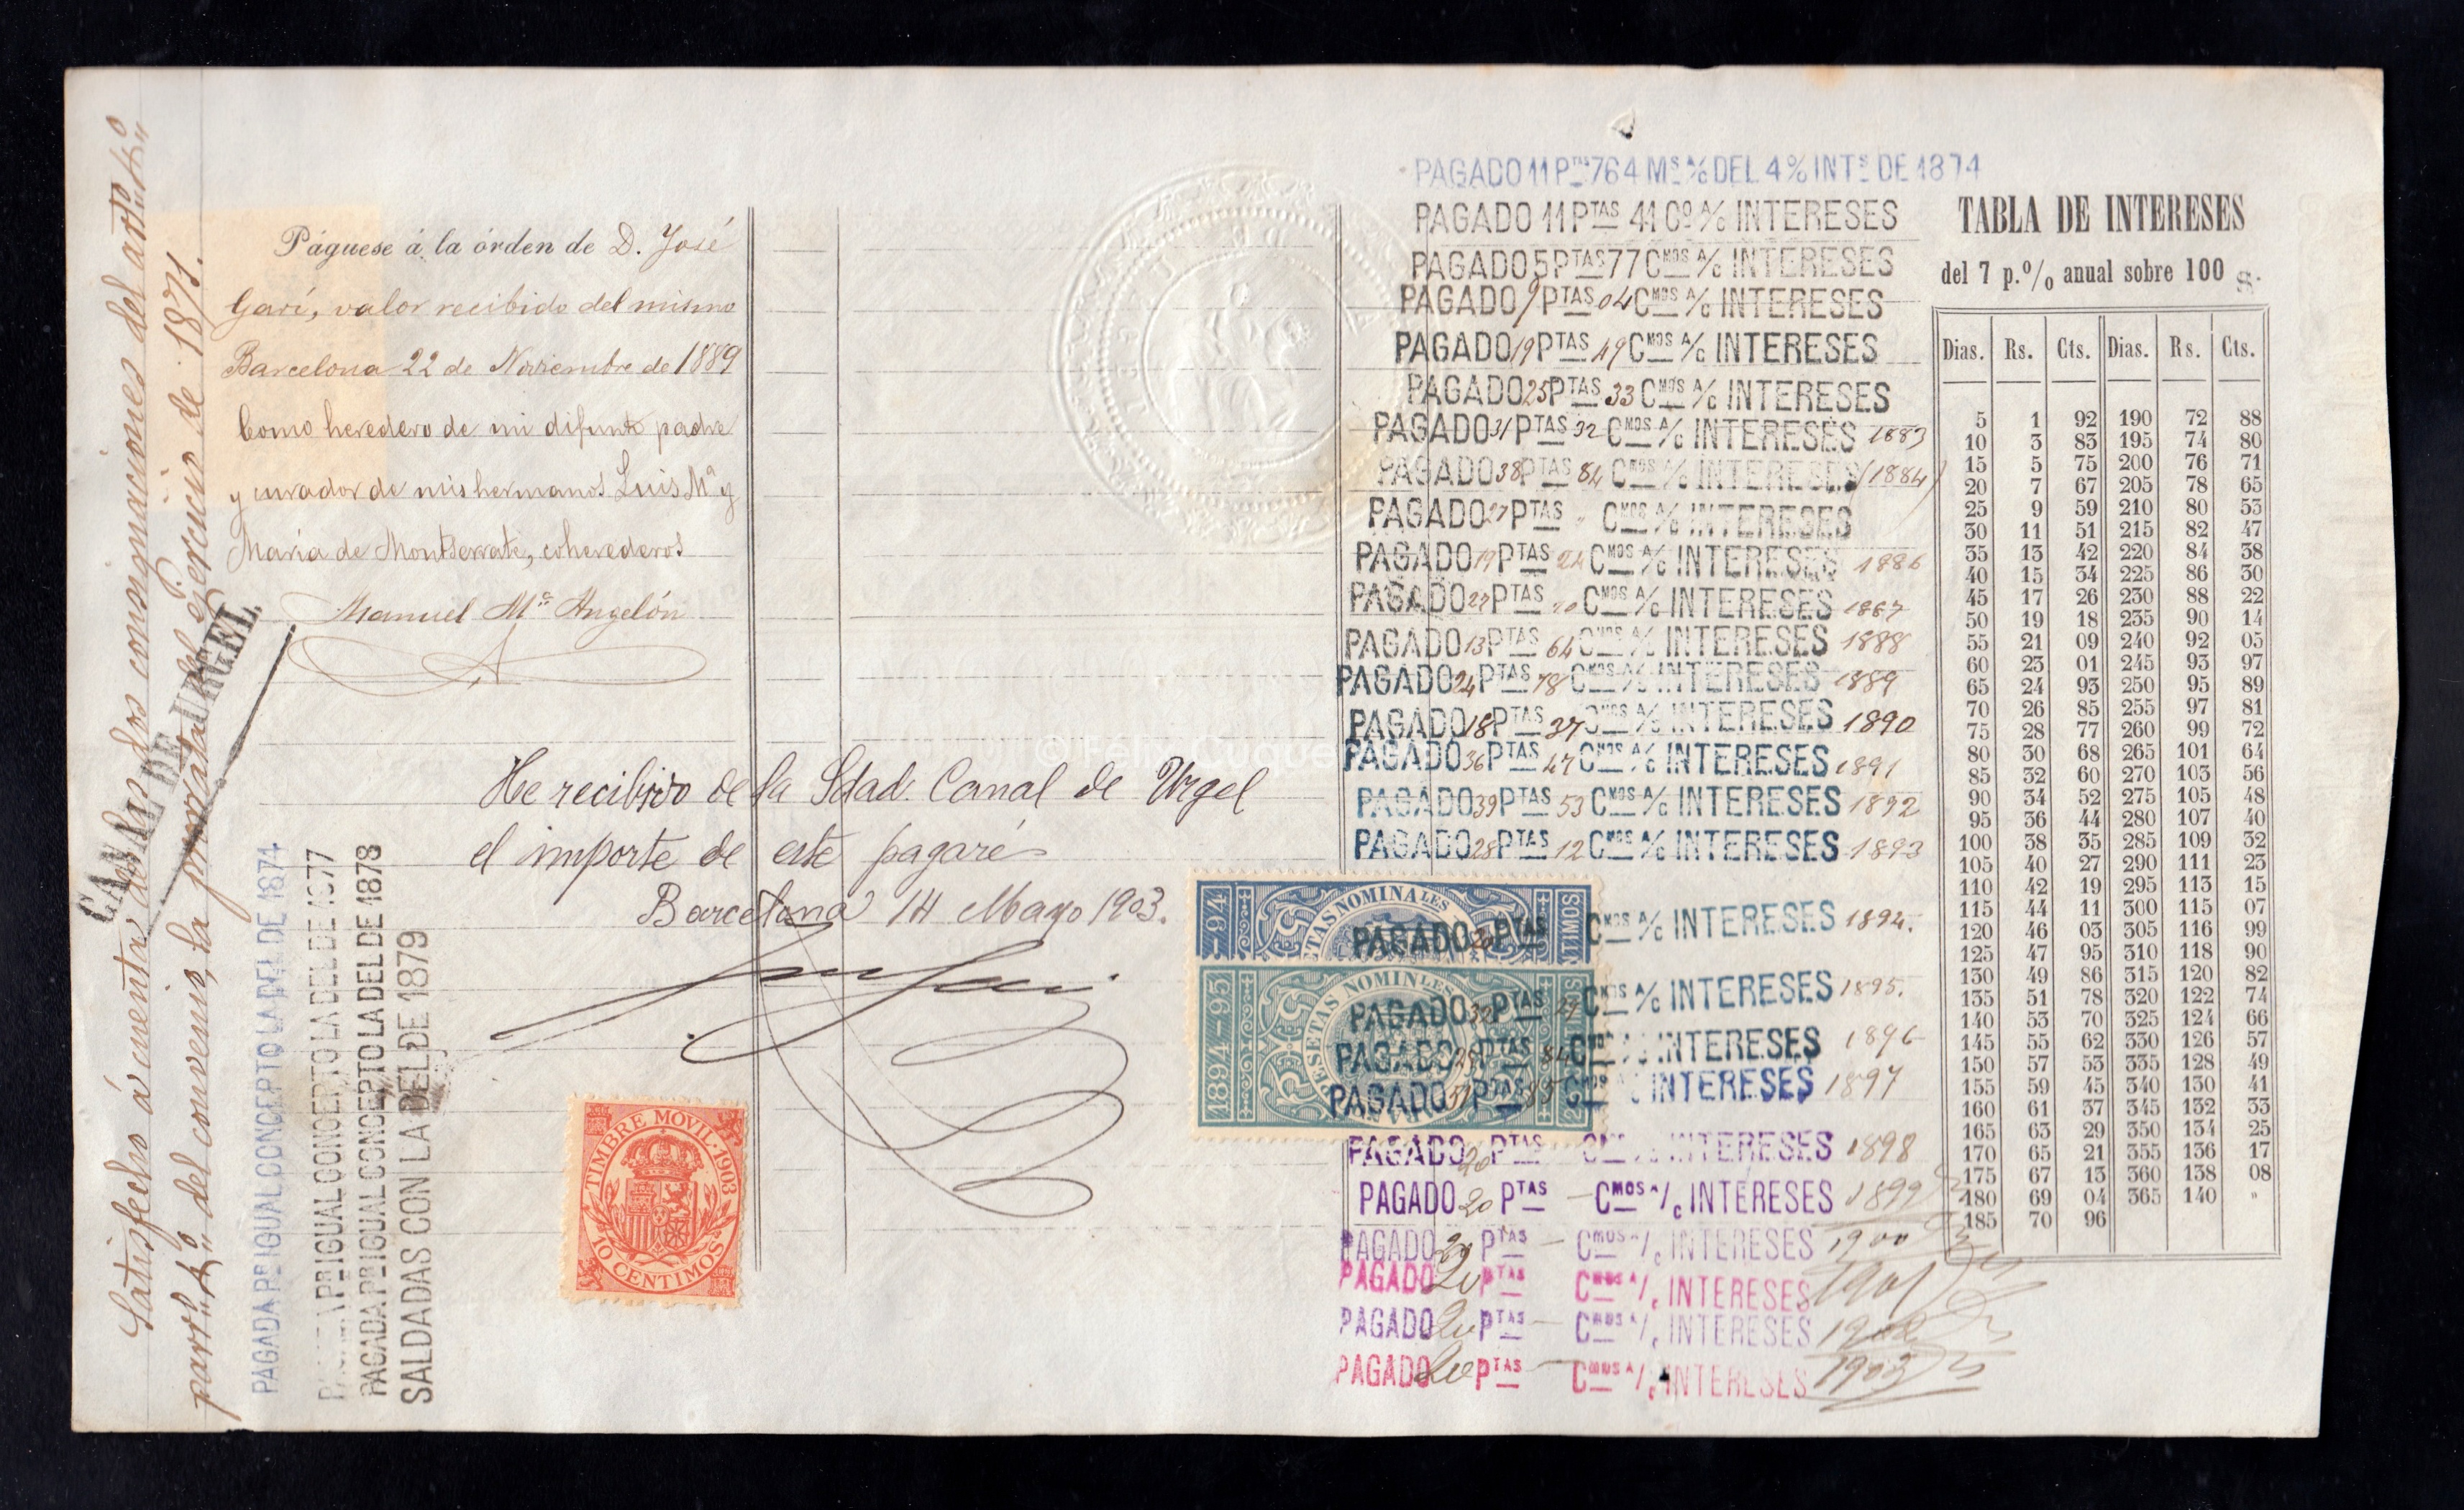 Satisfecho á cuenta de las dos consignaciones del artº 4º
parrº 4º del convenio, la prorrata del ejercicio de 1871.
CANAL DE URGEL
PAGADA Pº IGUAL CONCEPTO LA DEL DE 1874
IGUAL CONCEPTO LA DEL DE 1877
PAGADA Pº IGUAL CONCEPTO LA DEL DE 1878
SALDADAS CON LA DEL DE 1879
Páguese á la órden de D. José
Garí, valor recibido del mismo
Barcelona 22 de Noviembre de 1889
Como heredero de mi difunto padre
y curador de mis hermanos Luis Mª y
María de Montserrate, coherederos
Manuel Mª Angelón
He recibido de la Sdad. Canal de Urgel
el importe de este pagaré
Barcelona 14 Mayo 1903.
TIMBRE MOVIL·1903
10 CENTIMOS
-94
PESETAS NOMINALES
TIMOS
1894-95
PESETAS NOMINLES
PAGADO 11 Ptas 764 Ms a/c DEL 4% INTs DE 1874
PAGADO 11 PTAS 41 Cº A/c INTERESES
PAGADO 5 PTAS 77 CMOS A/c INTERESES
PAGADO 9 PTAS 04 CMOS A/c INTERESES
PAGADO 19 PTAS 49 CMOS A/c INTERESES
PAGADO 25 PTAS 33 CMOS A/c INTERESES
PAGADO 31 PTAS 32 CMOS A/c INTERESES 1883
PAGADO 38 PTAS 84 CMOS A/c INTERESES (1884)
PAGADO 27 PTAS " CMOS A/c INTERESES
PAGADO 19 PTAS 24 CMOS A/c INTERESES 1886
PAGADO 27 PTAS 20 CMOS A/c INTERESES 1887
PAGADO 13 PTAS 64 CMOS A/c INTERESES 1888
PAGADO 24 PTAS 78 CMOS A/c INTERESES 1889
PAGADO 18 PTAS 37 CMOS A/c INTERESES 1890
PAGADO 36 PTAS 47 CMOS A/c INTERESES 1891
PAGADO 39 PTAS 53 CMOS A/c INTERESES 1892
PAGADO 28 PTAS 12 CMOS A/c INTERESES 1893
PAGADO 20 PTAS CMOS A/c INTERESES 1894.
PAGADO 32 PTAS 29 CMOS A/c INTERESES 1895.
PAGADO 25 PTAS 84 CMOS A/c INTERESES 1896
PAGADO 51 PTAS 95 CMOS A/c INTERESES 1897
PAGADO 20 PTAS CMOS A/c INTERESES 1898
PAGADO 20 PTAS - CMOS A/c INTERESES 1899
PAGADO 20 PTAS - CMOS A/c INTERESES 1900
PAGADO 20 PTAS CMOS A/c INTERESES 1901
PAGADO 20 PTAS - CMOS A/c INTERESES 1902
PAGADO 20 PTAS - CMOS A/c INTERESES 1903
TABLA DE INTERESES
del 7 p.% anual sobre 100
Dias. Rs. Cts. Dias. Rs. Cts.
5 1 92 190 72 88
10 3 83 195 74 80
15 5 75 200 76 71
20 7 67 205 78 65
25 9 59 210 80 53
30 11 51 215 82 47
35 13 42 220 84 38
40 15 34 225 86 30
45 17 26 230 88 22
50 19 18 235 90 14
55 21 09 240 92 05
60 23 01 245 93 97
65 24 93 250 95 89
70 26 85 255 97 81
75 28 77 260 99 72
80 30 68 265 101 64
85 32 60 270 103 56
90 34 52 275 105 48
95 36 44 280 107 40
100 38 35 285 109 32
105 40 27 290 111 23
110 42 19 295 113 15
115 44 11 300 115 07
120 46 03 305 116 99
125 47 95 310 118 90
130 49 86 315 120 82
135 51 78 320 122 74
140 53 70 325 124 66
145 55 62 330 126 57
150 57 53 335 128 49
155 59 45 340 130 41
160 61 37 345 132 33
165 63 29 350 134 25
170 65 21 355 136 17
175 67 13 360 138 08
180 69 04 365 140 "
185 70 96